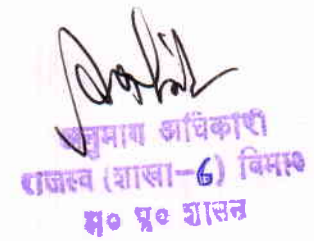 अनुभाग अधिकारी
राजस्व (शाखा-6) विभाग
म० प्र० शासन